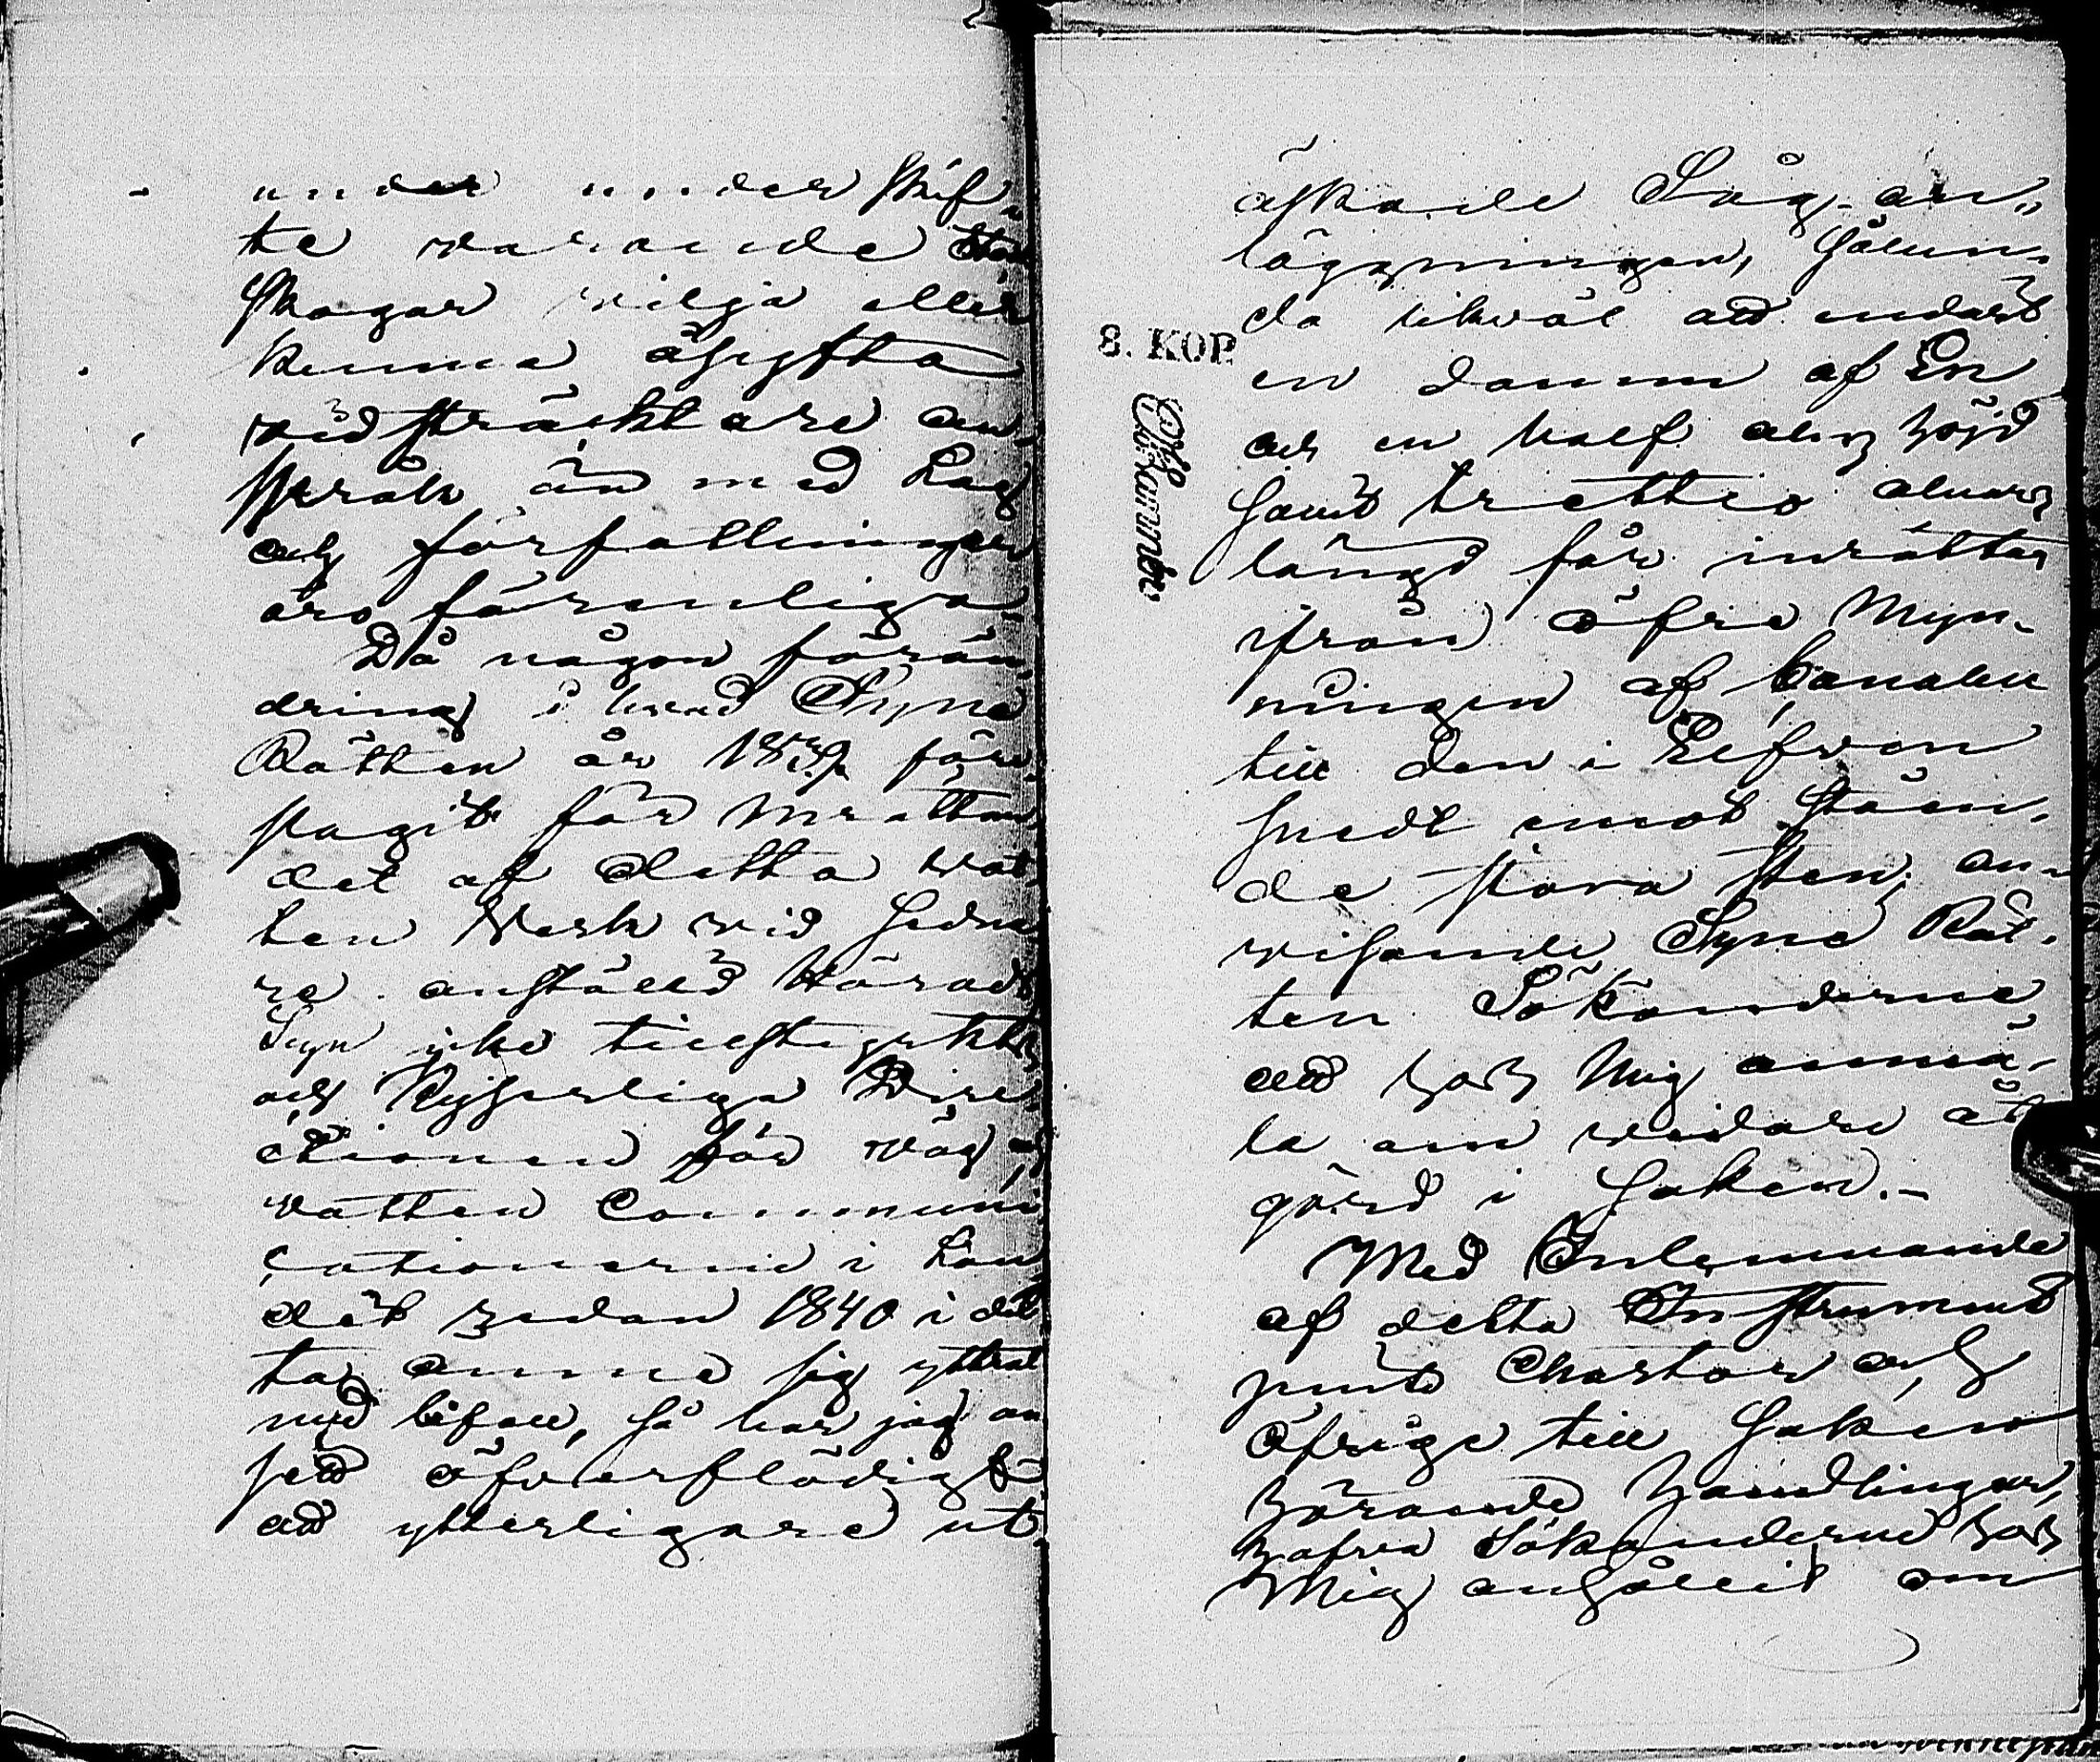 under under skif-
te varande Stor
skogar vilja eller
kunna åsyfta
vidsträcktare an-
språk än med Lag
och författningar
äro förenliga.
Då någon förän-
dring i hvad Syne
Rätten år 1839 före-
slagit för inrättan-
det af detta vat-
ten Verk vid sedna-
re anställd Härads
Syn icke tillstyrkts
och Kejserliga Dire-
ctionen för väg och
vatten Communi-
cationerne i Lan-
det redan 1840 i det-
ta ämne sig yttrat
med bifall, så har jag an-
sett öfverflödigt
att ytterligare ut-
äskade Såg-an-
läggningen, sålun-
da likväl att endast
en damm af En
och en half alns höjd
samt trettio alnars
längd får inrättas
ifrån öfre Myn-
ningen af kanalen
till den i Elfven
snedt emot ståen-
de stora sten; an-
visande Syne Rät-
ten Sökanderne
att hos Mig anmä-
la om vidare åt-
gärd i saken.-
Med Inlemnande
af detta Instrument
jemte Chartor och
öfrige till saken
hörande handlingar,
hafva Sökanderne hos
Mig anhållit om
8. KOP.
Stämpla.